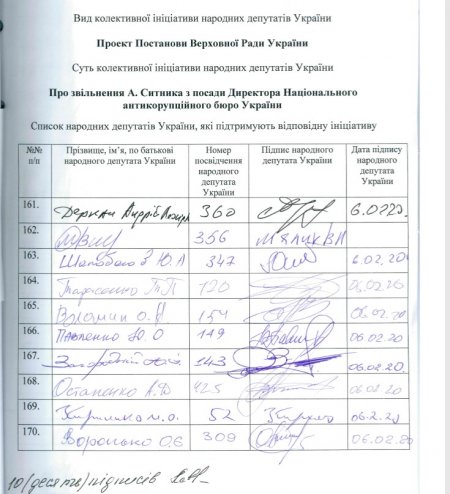 Вид колективної ініціативи народних депутатів України
Проект Постанови Верховної Ради України
Суть колективної ініціативи народних депутатів України
Про звільнення А. Ситника з посади Директора Національного
антикорупційного бюро України
Список народних депутатів України, які підтримують відповідну ініціативу
№№ п/п Прізвище, ім'я, по батькові народного депутата України Номер посвідчення народного депутата України Підпис народного депутата України Дата підпису народного депутата України
161. Деркач Андрій 360 6.02.20
162. 356
163. Ю.А 347 6.02.20
164. 120 06.02.20
165. 154 06.02.20
166. Павленко Ю.О 149 06.02.20
167. 143 06.02.20
168. Остапенко А.Д 425 06.02.20
169. 52 06.2.20
170. Воронько О.Є 309 06.02.20
10 (десять) підписів